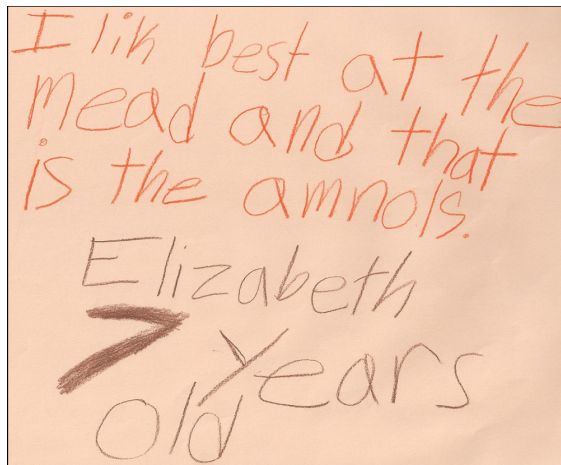 I lik best at the
mead and that
is the amnols.
Elizabeth
7 years
old